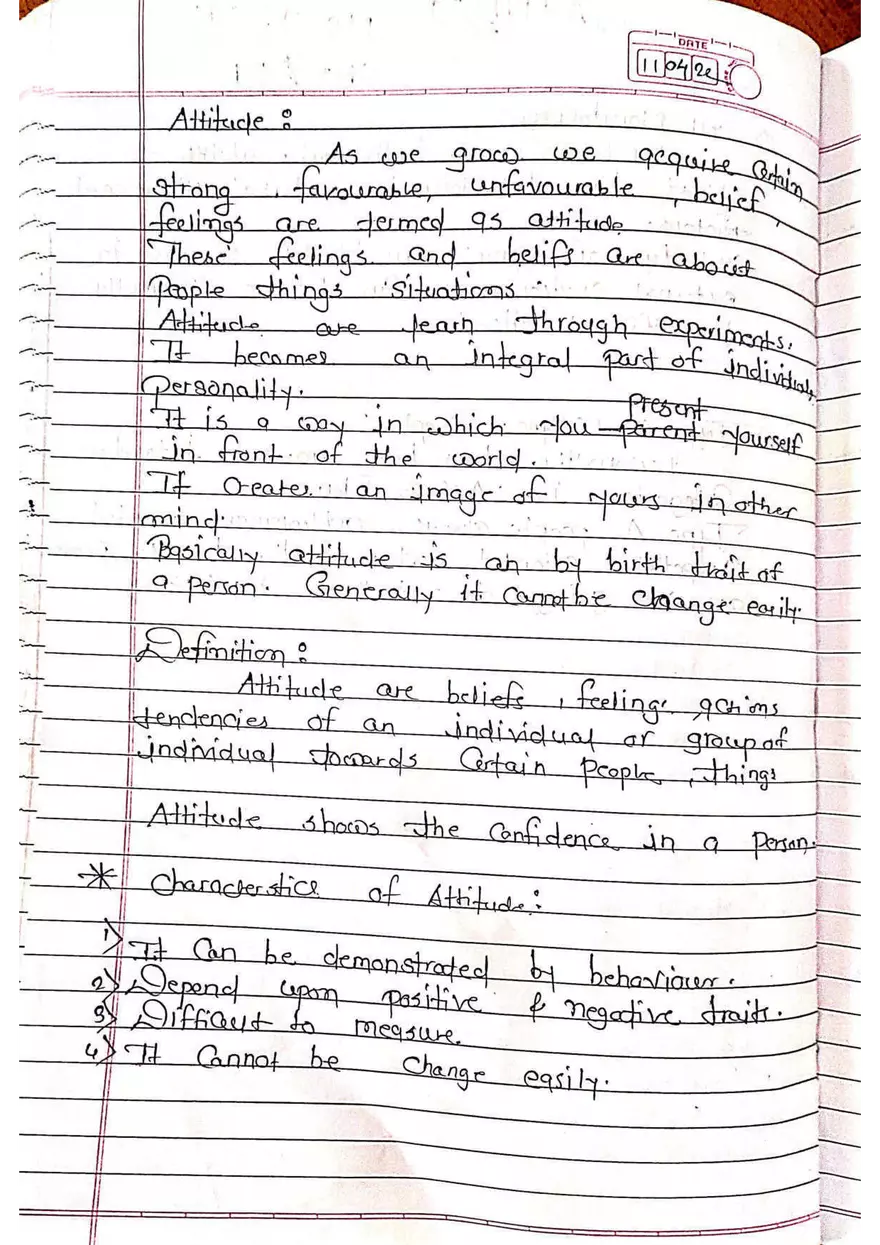 DATE
11 04 22
Attitude :
As we grow we acquire certain
strong, favourable, unfavourable, belief,
feelings are termed as attitude
These feelings and belifs are about
People things situations
Attitude are learn through experiments.
It becomes an integral part of individual
Personality.
present
It is a way in which you parent yourself
in front of the world.
It creates an image of yours in other
mind.
Basically attitude is an by birth trait of
a person. Generally it cannot be change easily.
Definition :
Attitude are beliefs, feeling, actions
tendencies of an individual or group of
individual towards certain people, things
Attitude shows the confidence in a person.
* Characterstics of Attitude :
1) It can be demonstrated by behaviour.
2) Depend upon positive & negative traits.
3) Difficult to measure.
4) It cannot be change easily.